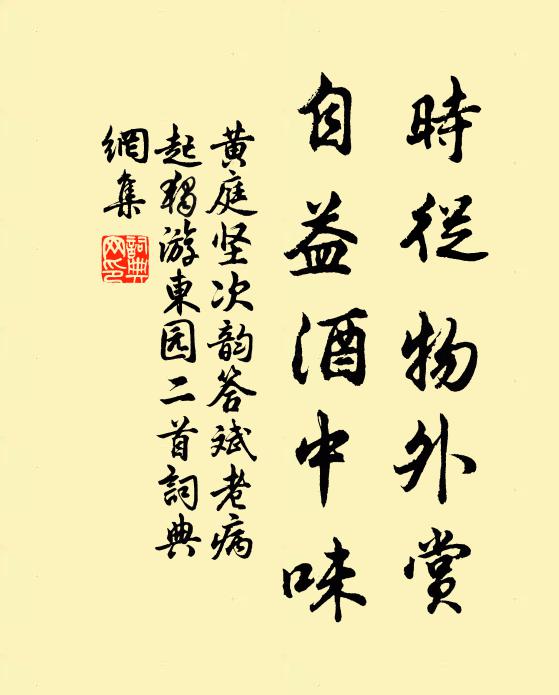 時從物外賞
自益酒中味
黄庭坚次韵答斌老病
起独游東园二首詞典
網集
詞典網印